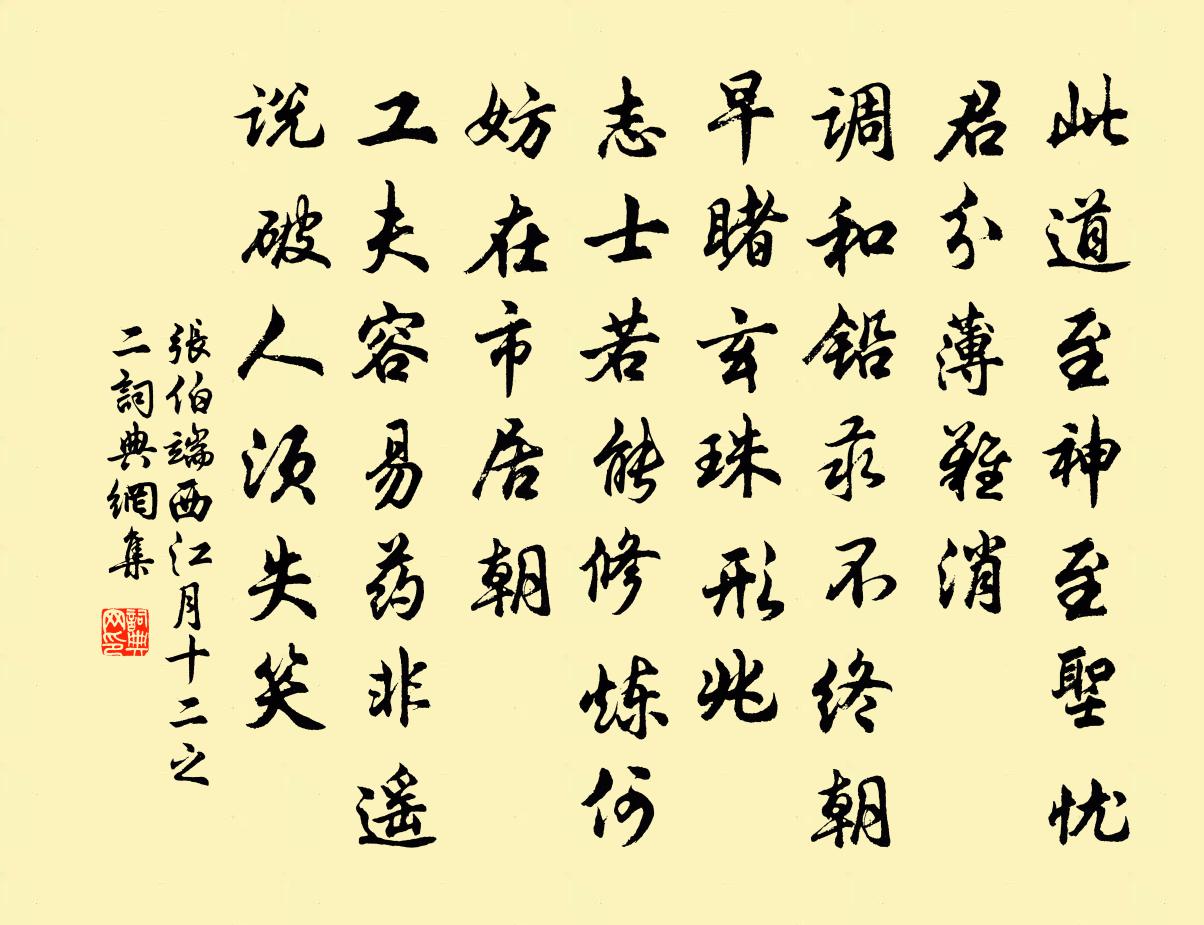 此道至神至聖忧
君分薄难消
调和铅汞不终朝
早睹玄珠形兆
志士若能修炼何
妨在市居朝
工夫容易药非遥
说破人须失笑
張伯端西江月十二之
二詞典網集
詞典網印